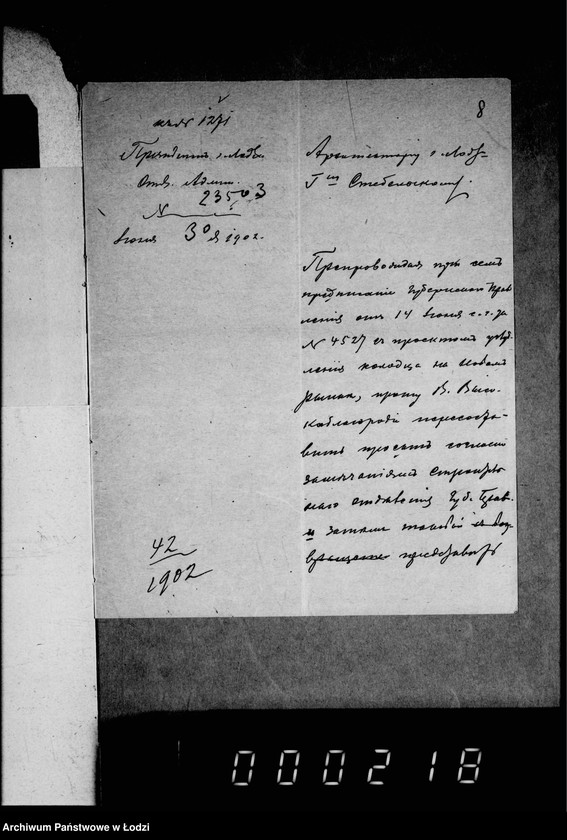 8
1271
Президент г. Лодзи.
Отд. Админ.
23503
N
Іюня 30 дня 1902.
Архитектору г. Лодзи
Г-ну Стебельскому.
Препровождая при семъ
предписаніе Губернскаго Прав
ленія отъ 14 Іюня с. г. за
N 4527 съ проектомъ
колодца на Новомъ
Рынкѣ, прошу В. Высо
коблагородіе пересоста-
вить проектъ согласно
замѣчаніямъ Строитель
наго отдѣленія Губ. Прав.
и затѣмъ таковой
представить
42
1902
000218
Archiwum Państwowe w Łodzi